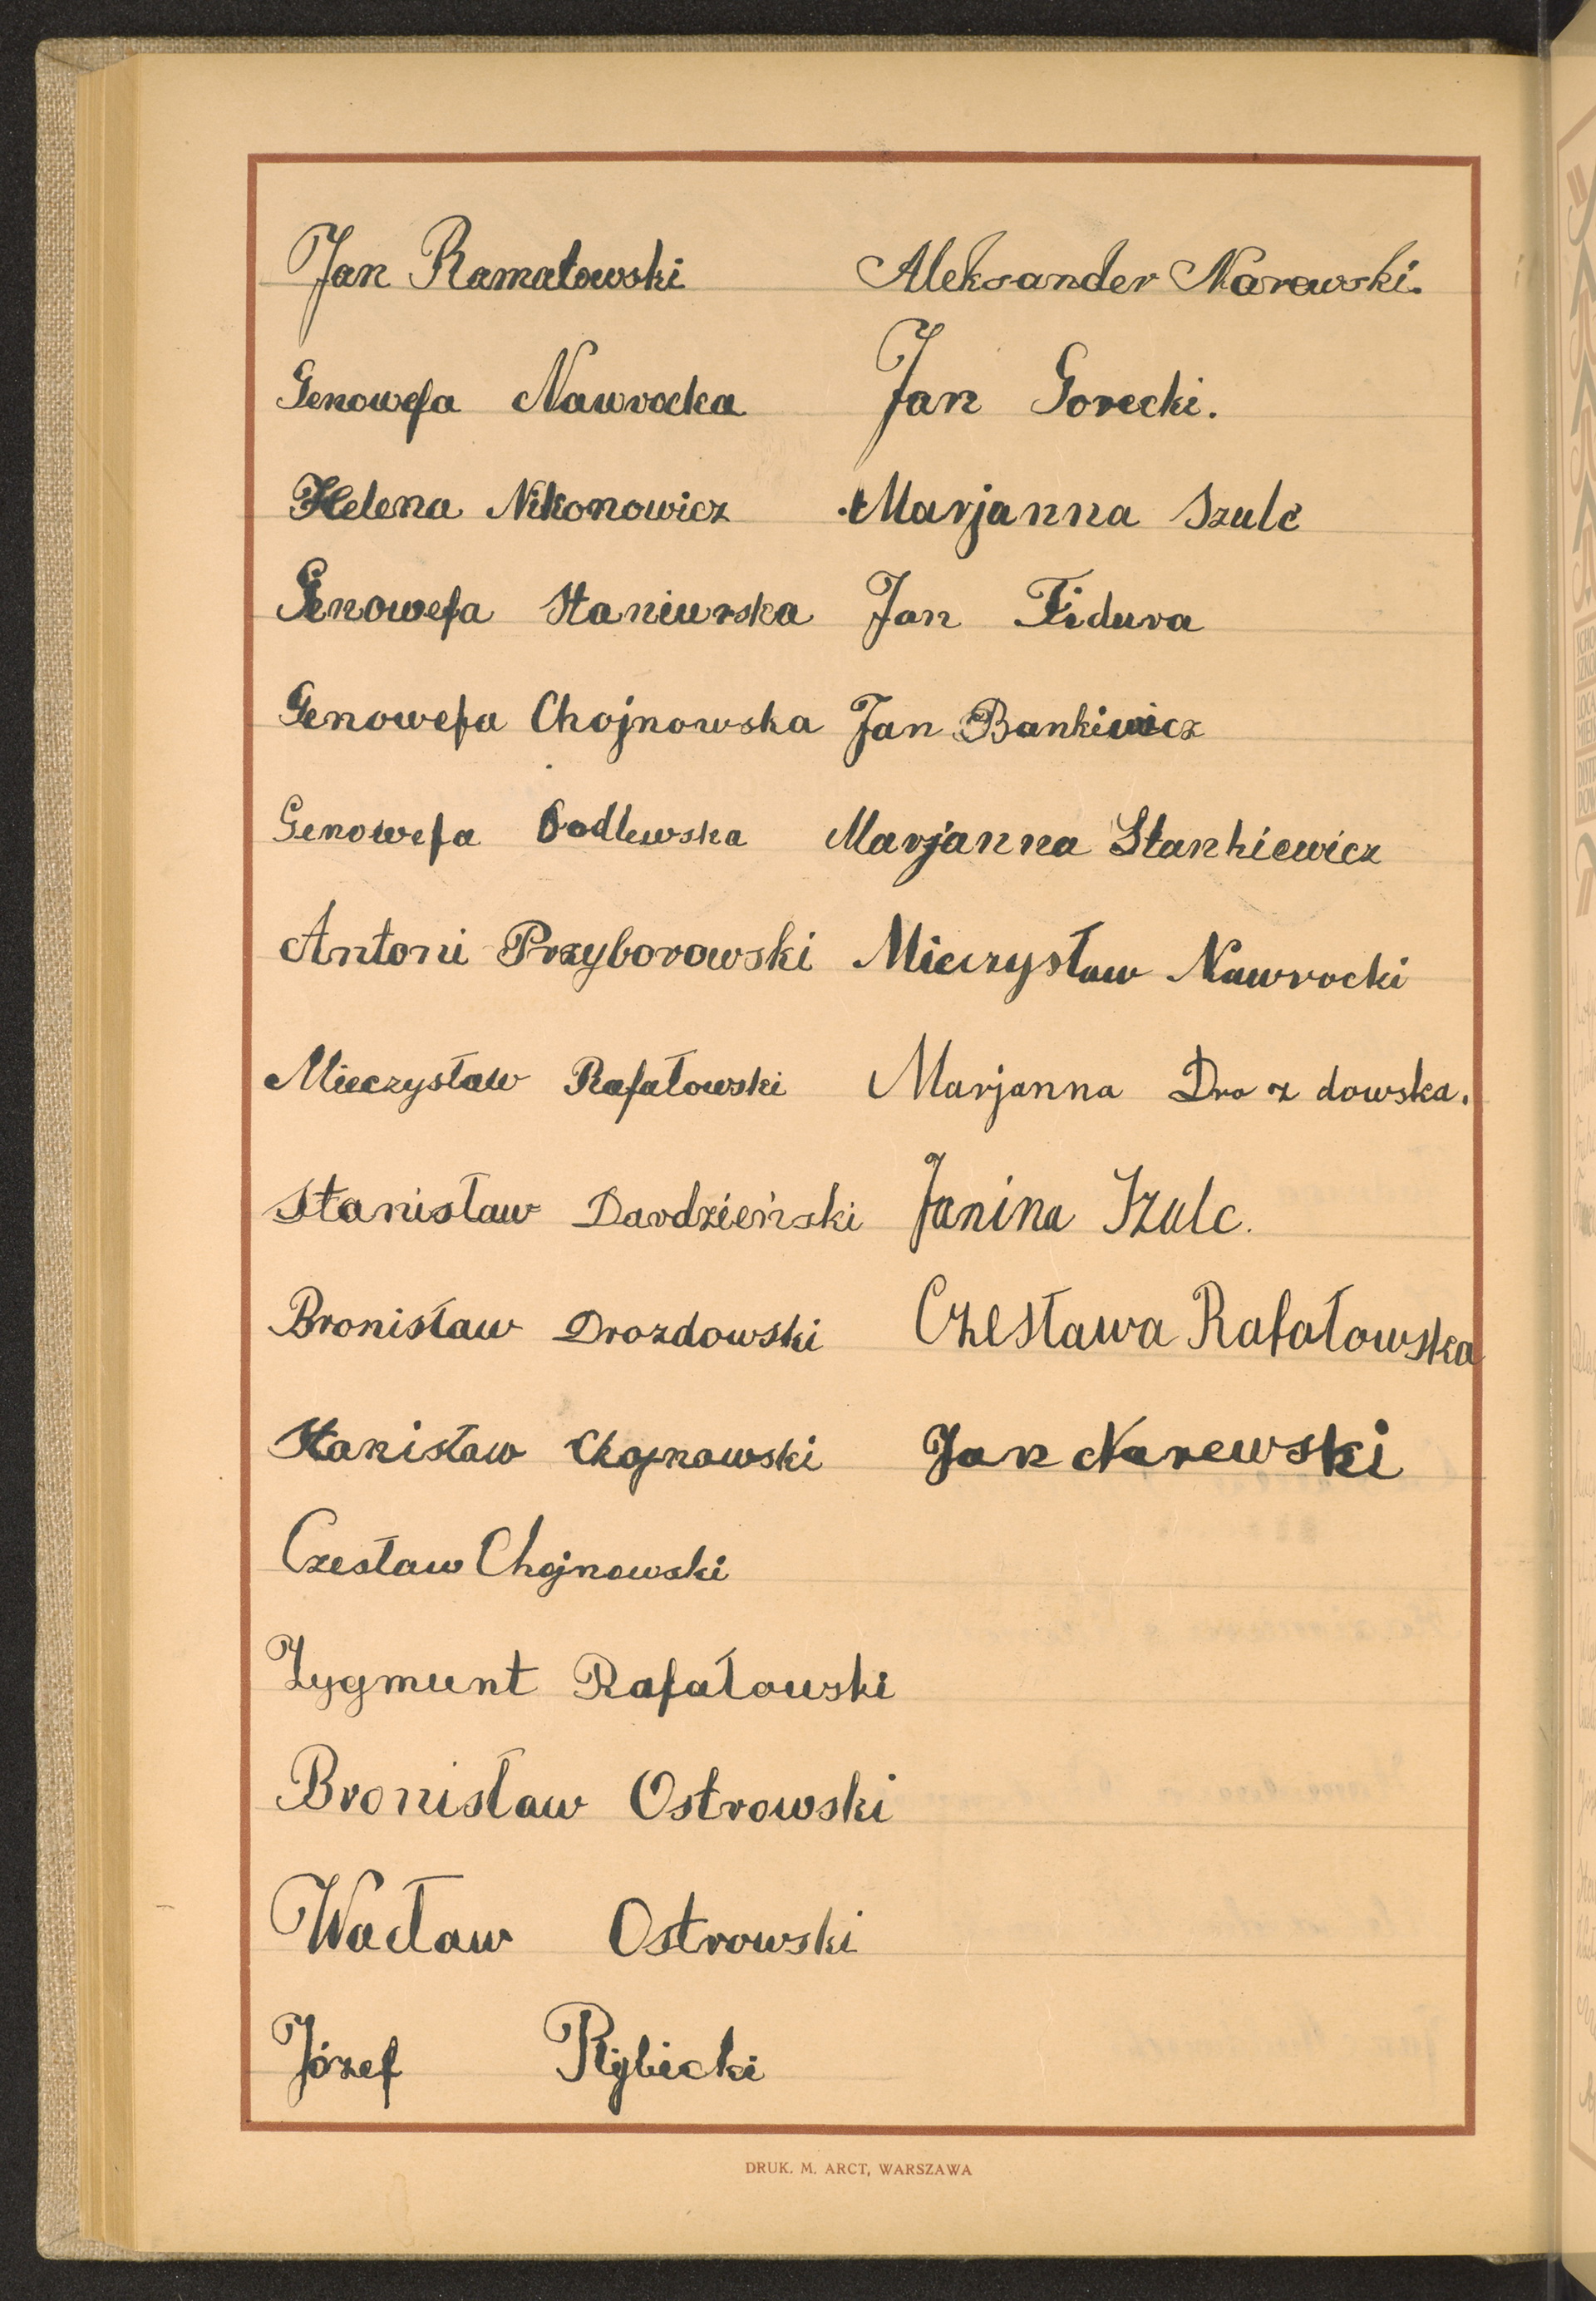 Jan Ramatowski Aleksander Narewski.
Genowefa Nawrocka Jan Gorecki.
Helena Nikonowicz Marjanna Szulc
Genowefa Staniurska Jan Fidura
Genowefa Chojnowska Jan Bankiewicz
Genowefa Godlewska Marjanna Stankiewicz
Antoni Przyborowski Mieczysław Nawrocki
Mieczysław Rafałowski Marjanna Drozdowska.
Stanisław Dardzieński Janina Szulc.
Bronisław Drozdowski Czesława Rafałowska
Stanisław Chojnowski Jan Narewski
Czesław Chojnowski
Zygmunt Rafałowski
Bronisław Ostrowski
Wacław Ostrowski
Józef Rybicki
DRUK. M. ARCT, WARSZAWA